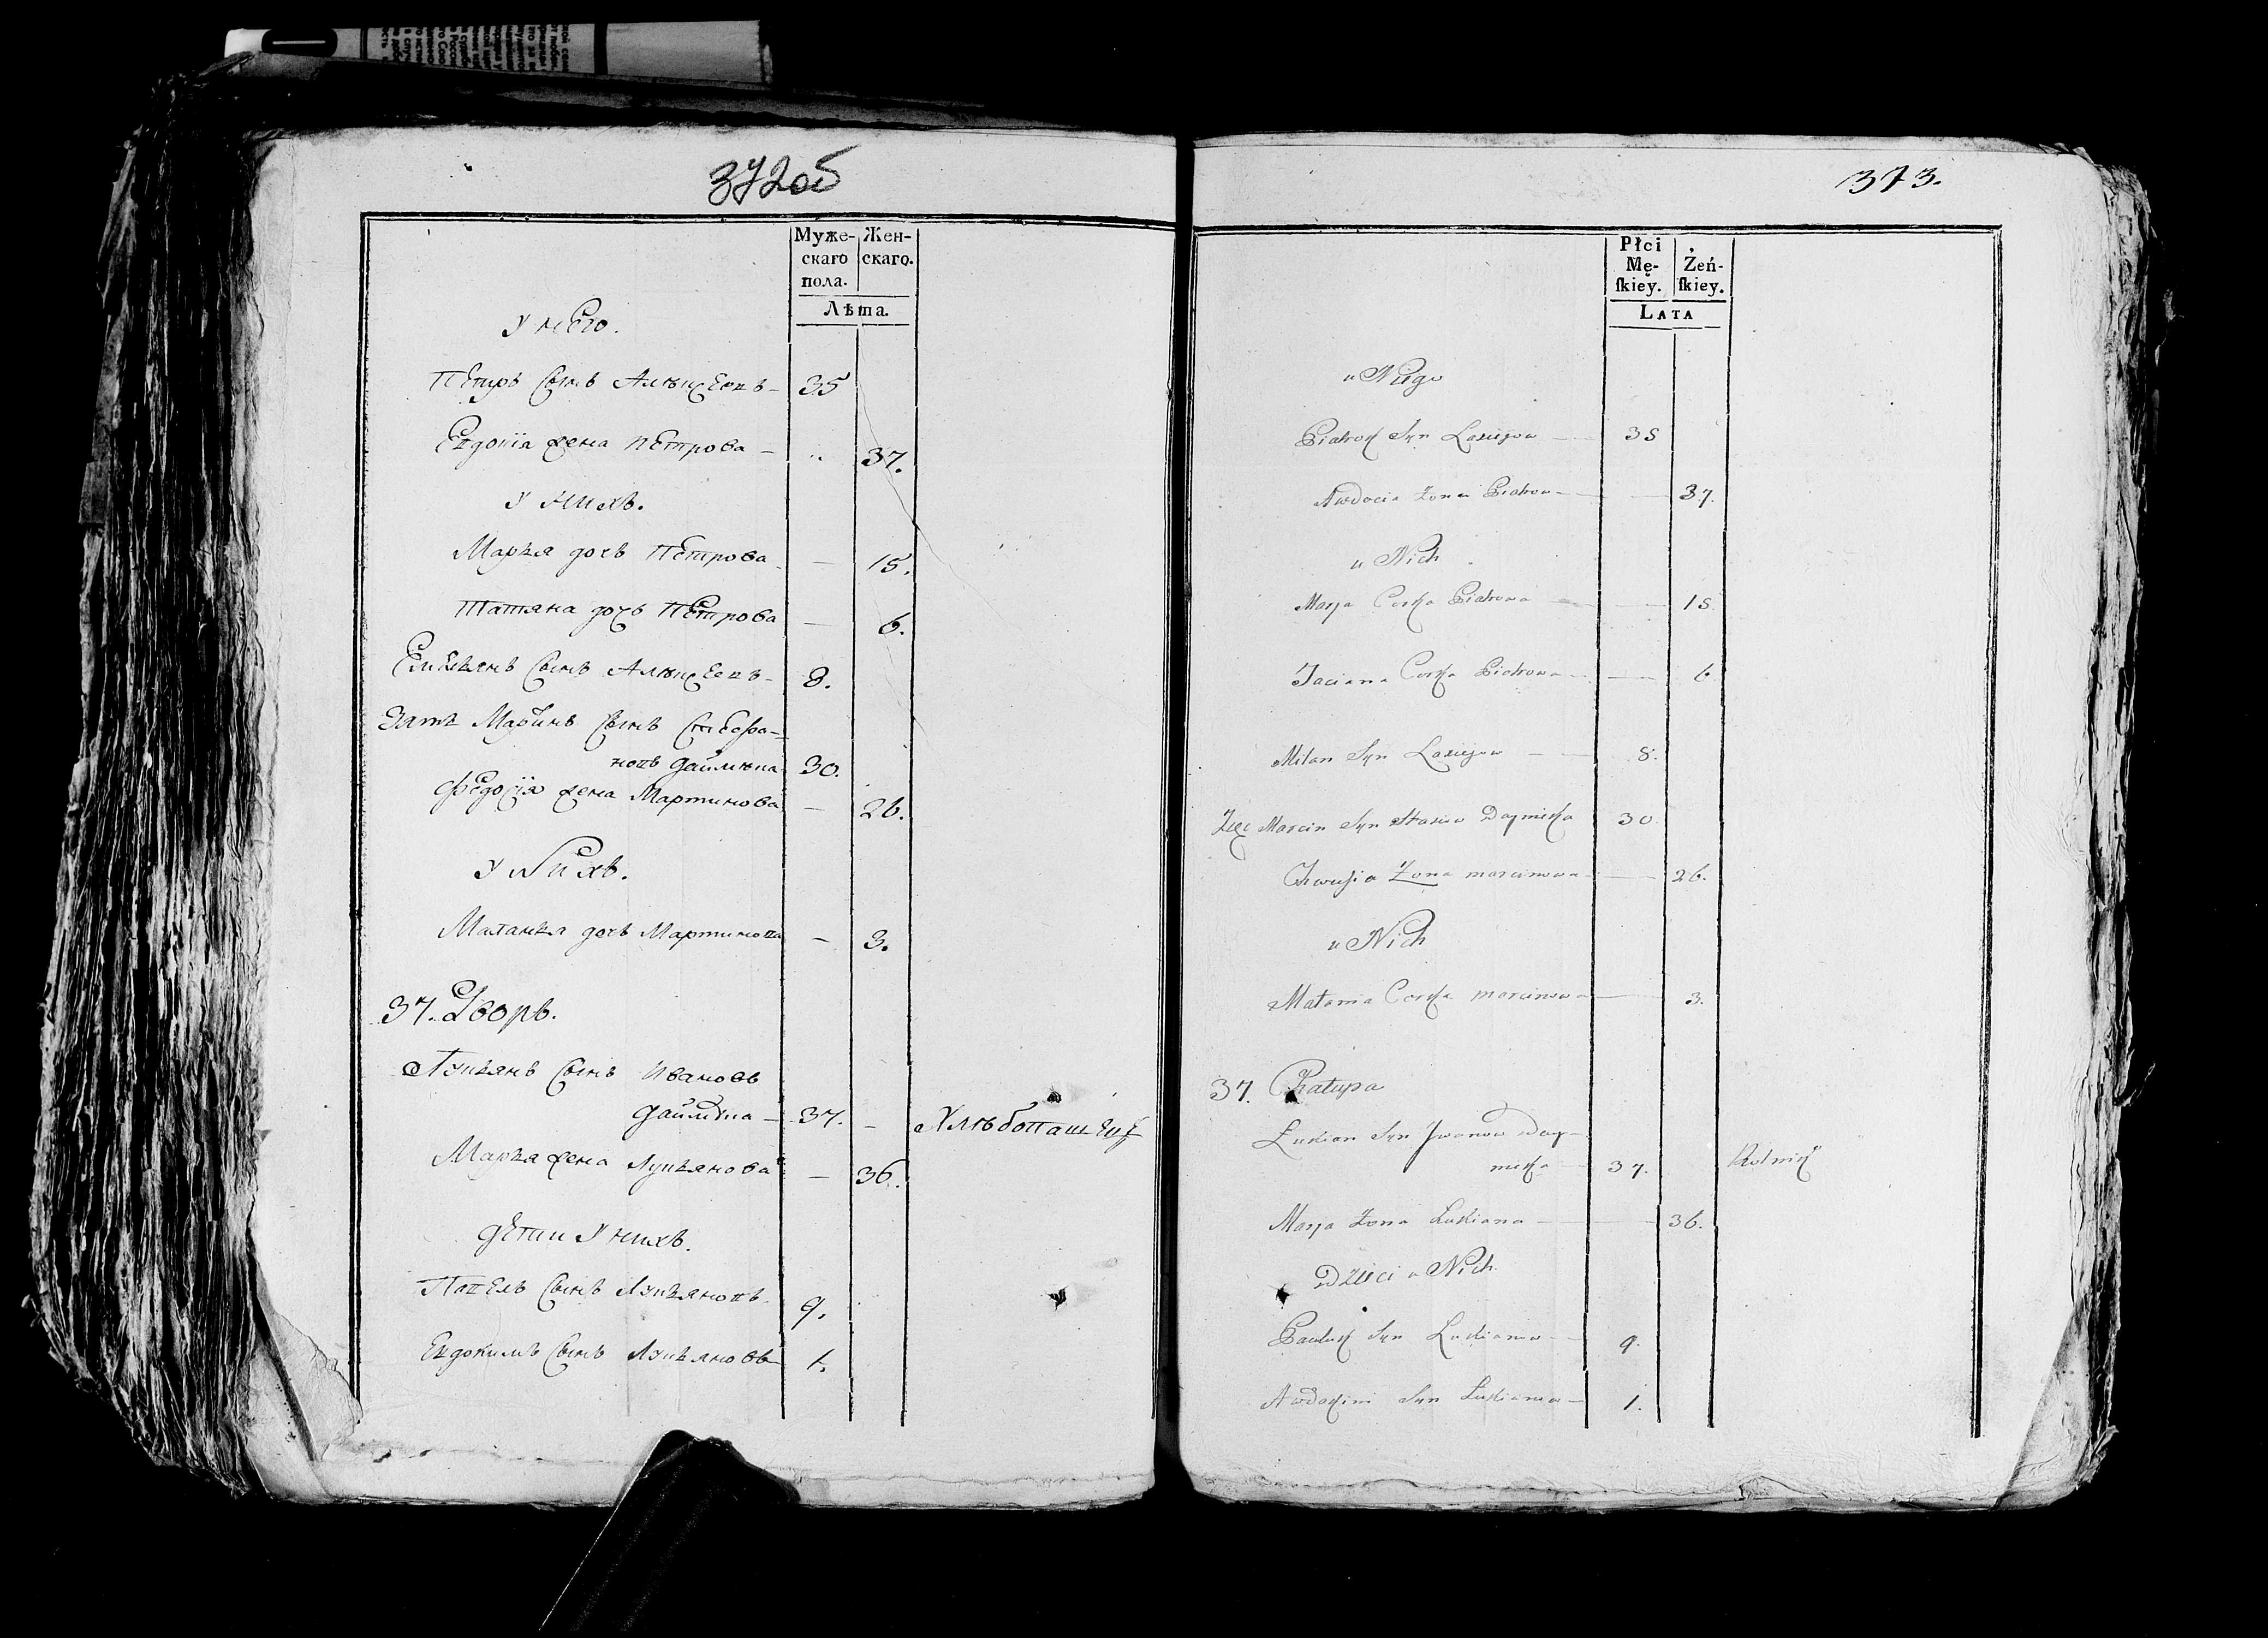 372об
Муже-
скаго
пола.
Жен-
скаго.
Лѣта.
У него.
Петръ сынъ Алѣксеевъ - 35
Евдокія жена Петрова - 37.
У нихъ.
Марья дочь Петрова - 15.
Татяна дочь Петрова - 6.
Емельянъ сынъ Алѣксеевъ - 8.
Зять Мартинъ сынъ
30.
Федосія жена Мартинова - 26.
У нихъ.
Маланья дочь Мартинова - 3.
37. Дворъ.
Лукьянъ сынъ Ивановъ
Даймѣка - 37. - Хлѣбопашецъ
Марья жена Лукьянова - 36.
Дети у нихъ.
Павелъ сынъ Лукьяновъ - 9.
Евдокимъ сынъ Лукьяновъ 1.
373.
Płci
Mę-
ſkiey.
Żeń-
ſkiey.
LATA
u Niego
Piatrok Syn 35
Awdocia Żona Piatrowa - 37.
u Nich
Marja Corka Piatrowa - 15
Taciana Corka Piatrowa - 6
Milan Syn 8.
Zięć Marcin Syn Daymeka 30.
Chwesia Żona marcinowa - 26.
u Nich
Matania Corka marcinowa - 3.
37. Chatupa
Łukian Syn Jwanow Day-
meka - 37. Rolnik
Marja Żona Łukiana - 36.
Dzieci u Nich
Pauluk Syn Łukianow - 9.
Awdokim Syn Łukianow - 1.